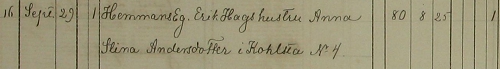 16 Sept 29 1 HemmansEg. Erik Hags hustru Anna 80 8 25 1
Stina Andersdotter i Kohlsta N 4